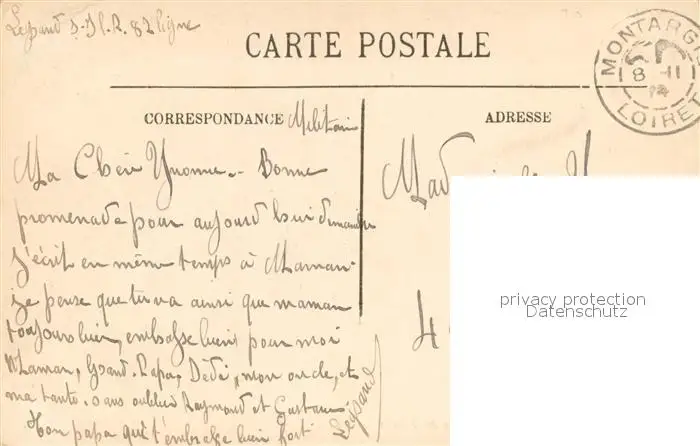 Legrand S-Il. R. 82 ligne
CARTE POSTALE
MONTARGI
8 -11
14
LOIRET
CORRESPONDANCE Militaire
ADRESSE
Ma Cheri Yvonne - Bonne
promenade pour aujourd hui dimanche
J'écrit en même temps à Maman
je pense que tu va ainsi que maman
toujours bien, embrasse bient pour moi
Maman, Grand-Papa, Dédé, mon oncle, et
ma tante. sans oublier Raymond et Gustave
Ton papa qui t'embrasse bien fort
Legrand
Mad
4
privacy protection
Datenschutz